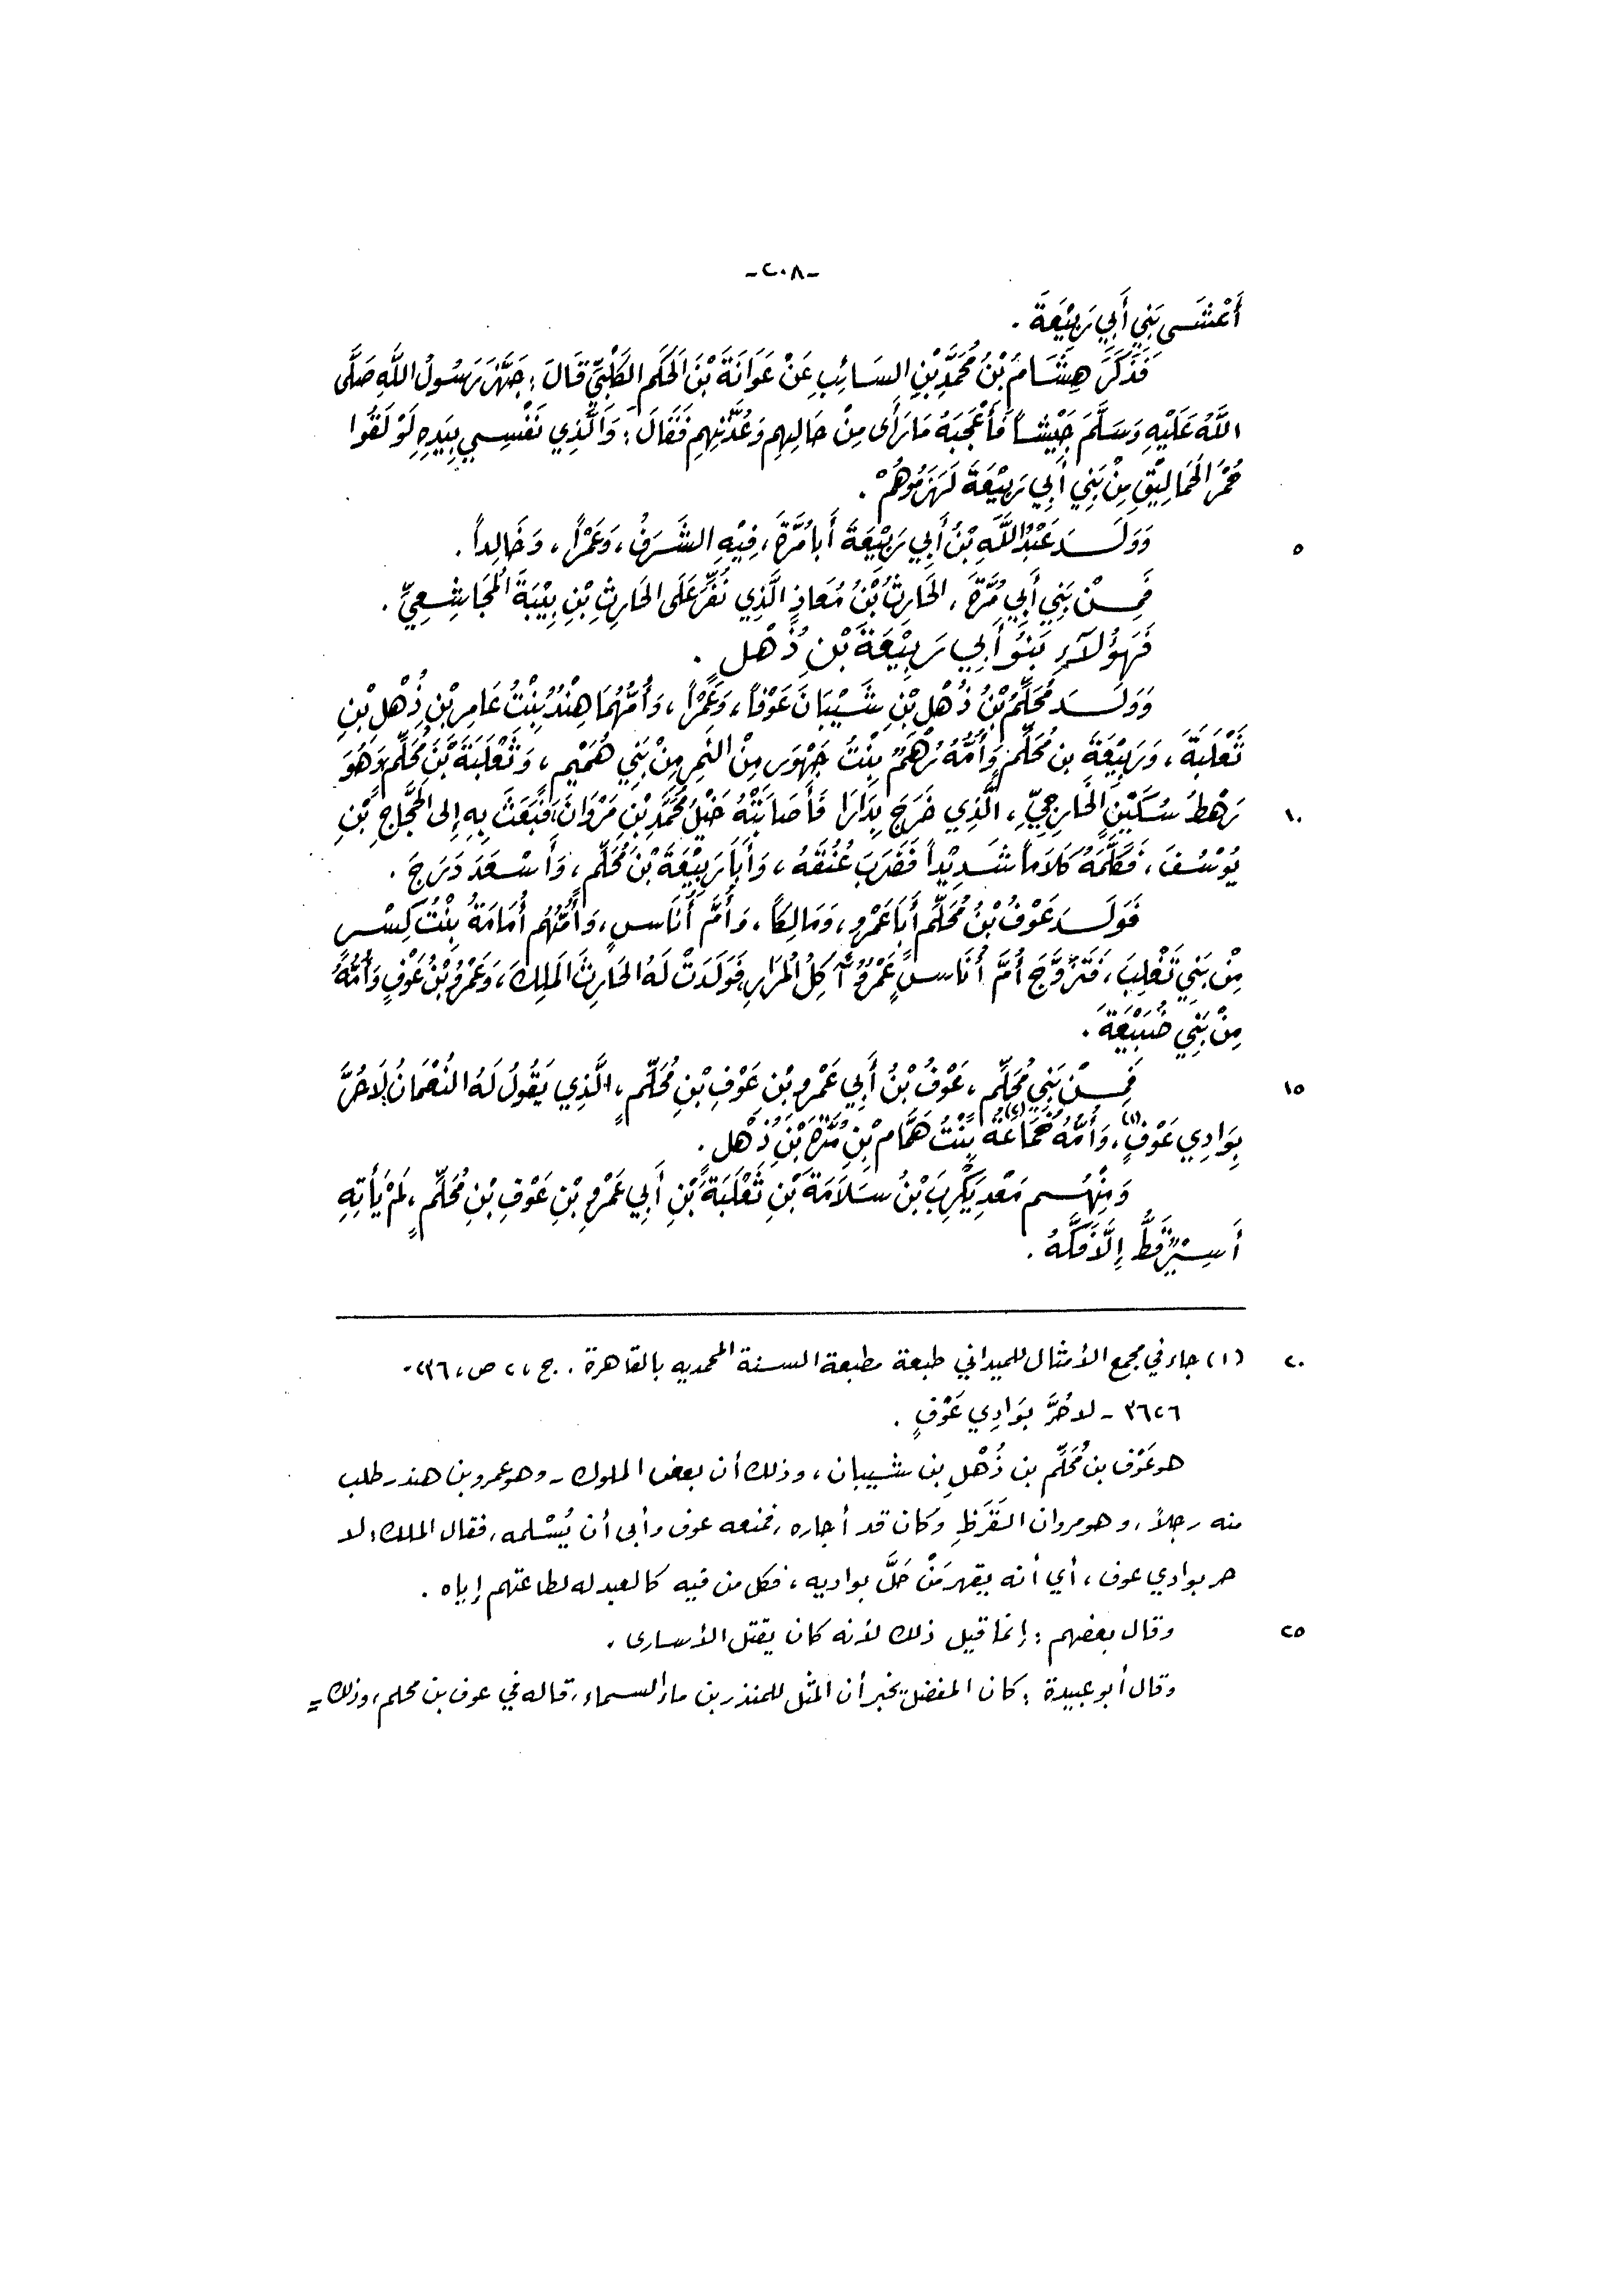 -٢٠٨-
أَعْشَى بَنِي أَبِي رَبِيْعَةَ .
فَذَكَرَ هِشَامُ بْنُ مُحَمَّدِ بْنِ السَائِبِ عَنْ عَوَانَةَ بْنَ الحَكَمِ الكَلْبِيِّ قَالَ : جَهَّزَ رَسُولُ اللَّهِ صَلَّى
اللَّهُ عَلَيْهِ وَسَلَّمَ جَيْشاً فَأَعْجَبَهُ مَا رَأَى مِنْ حَالِهِم وَعُدَّتِهِم فَقَالَ : وَالَّذِي نَفْسِي بِيَدِهِ لَوْ لَقُوا
حُمْرَ الحَمَالِيْقِ مِنْ بَنِي أَبِي رَبِيْعَةَ لَهَزَمُوهُمْ .
٥ وَوَلَدَ عَبْدُ اللَّهِ بْنُ أَبِي رَبِيْعَةَ أَبَا مُرَّةَ ، فِيْهِ الشَّرَفُ ، وَعَمْراً ، وَخَالِداً .
فَمِنْ بَنِي أَبِي مُرَّةَ ، الحَارِثُ بْنُ مُعَاذٍ الَّذِي نُفِّرَ عَلَى الحَارِثِ بْنِ بِيْبَةَ المُجَاشِعِيِّ .
فَهَؤُلَآءِ بَنُو أَبِي رَبِيْعَةَ بْنِ ذُهْلٍ .
وَوَلَدَ مُحَلِّمُ بْنُ ذُهْلِ بْنِ شَيْبَانَ عَوْفاً ، وَعَمْراً ، وَأُمُّهُمَا هِنْدُ بِنْتُ عَامِرِ بْنِ ذُهْلِ بْنِ
ثَعْلَبَةَ ، وَرَبِيْعَةَ بن مُحَلِّمٍ وَأُمُّهُ رُهْمُ بِنْتُ جَهْوَرٍ مِنْ النَّمِرِ مِنْ بَنِي هُمَيْمٍ ، وَثَعْلَبَةَ بْنَ مُحَلِّمٍ وَهُوَ
١٠ رَهْطُ سُكَيْنٍ الخَارِجِيِّ ، الَّذِي خَرَجَ بِدَارَا فَأَصَابَتْهُ خَيْلُ مُحَمَّدِ بْنِ مَرْوَانَ ، فَبَعَثَ بِهِ إِلى الحَجَّاجِ بْنِ
يُوْسُفَ ، فَكَلَّمَهُ كَلَاماً شَدِيْداً فَضَرَبَ عُنُقَهُ ، وَأَبَا رَبِيْعَةَ بْنَ مُحَلِّمٍ ، وَأَسْعَدَ دَرَجَ .
فَوَلَدَ عَوْفُ بْنُ مُحَلِّمٍ أَبَا عَمْرٍو ، وَمَالِكاً ، وَأُمَّ أُنَاسٍ ، وَأُمُّهُم أُمَامَةُ بِنْتُ كِسْرٍ
مِنْ بَنِي تَغْلِبَ ، فَتَزَوَّجَ أُمَّ أُنَاسٍ عَمْرُو آكِلُ المُرَارِ فَوَلَدَتْ لَهُ الحَارِثَ المَلِكَ ، وَعَمْرُو بْنُ عَوْفٍ وَأُمُّهُ
مِنْ بَنِي ضُبَيْعَةَ .
١٥ فَمِنْ بَنِي مُحَلِّمٍ ، عَوْفُ بْنُ أَبِي عَمْرِو بْنِ عَوْفِ بْنِ مُحَلِّمٍ ، الَّذِي يَقُولُ لَهُ النُعْمَانُ لَا حُرَّ
بِوَادِي عَوْفٍ (١) ، وَأُمُّهُ جُمَاعَةُ (٢) بِنْتُ هَمَّامِ بْنِ مُرَّةَ بْنِ ذُهْلٍ .
وَمِنْهُم مَعْدِيكَرِبَ بْنُ سَلَامَةَ بْنِ ثَعْلَبَةَ بْنِ أَبِي عَمْرِو بْنِ عَوْفِ بْنِ مُحَلِّمٍ ، لَمْ يَأْتِهِ
أَسِيْرٌ قَطُّ إِلَّا فَكَّهُ .
٢٠ (١) جاء في مجمع الأمثال للميداني طبعة مطبعة السنة المحمديه بالقاهرة . ج ، ٢ ص ، ٢٣٦ -
٣٦٢٦ - لا حُرَّ بِوَادِي عَوْفٍ .
هو عَوْف بن مُحَلِّم بن ذُهْلِ بن شيبان ، وذلك أن بعض الملوك - وهو عمرو بن هند - طلب
منه رجلاً ، وهو مروان القَرَظِ وكان قد أجاره ، فمنعه عوف وأبى أن يُسْلمه ، فقال الملك : لا
حر بوادي عوف ، أي أنه يقهر مَنْ حَلَّ بواديه ، فكل من فيه كالعبد له لطاعتهم إياه .
٢٥ وقال بعضهم : إنما قيل ذلك لأنه كان يقتل الأسارى .
وقال أبو عبيدة : كان المفضل يخبر أن المثل للمنذر بن ماء السماء ، قاله في عوف بن محلم ، وذلك =